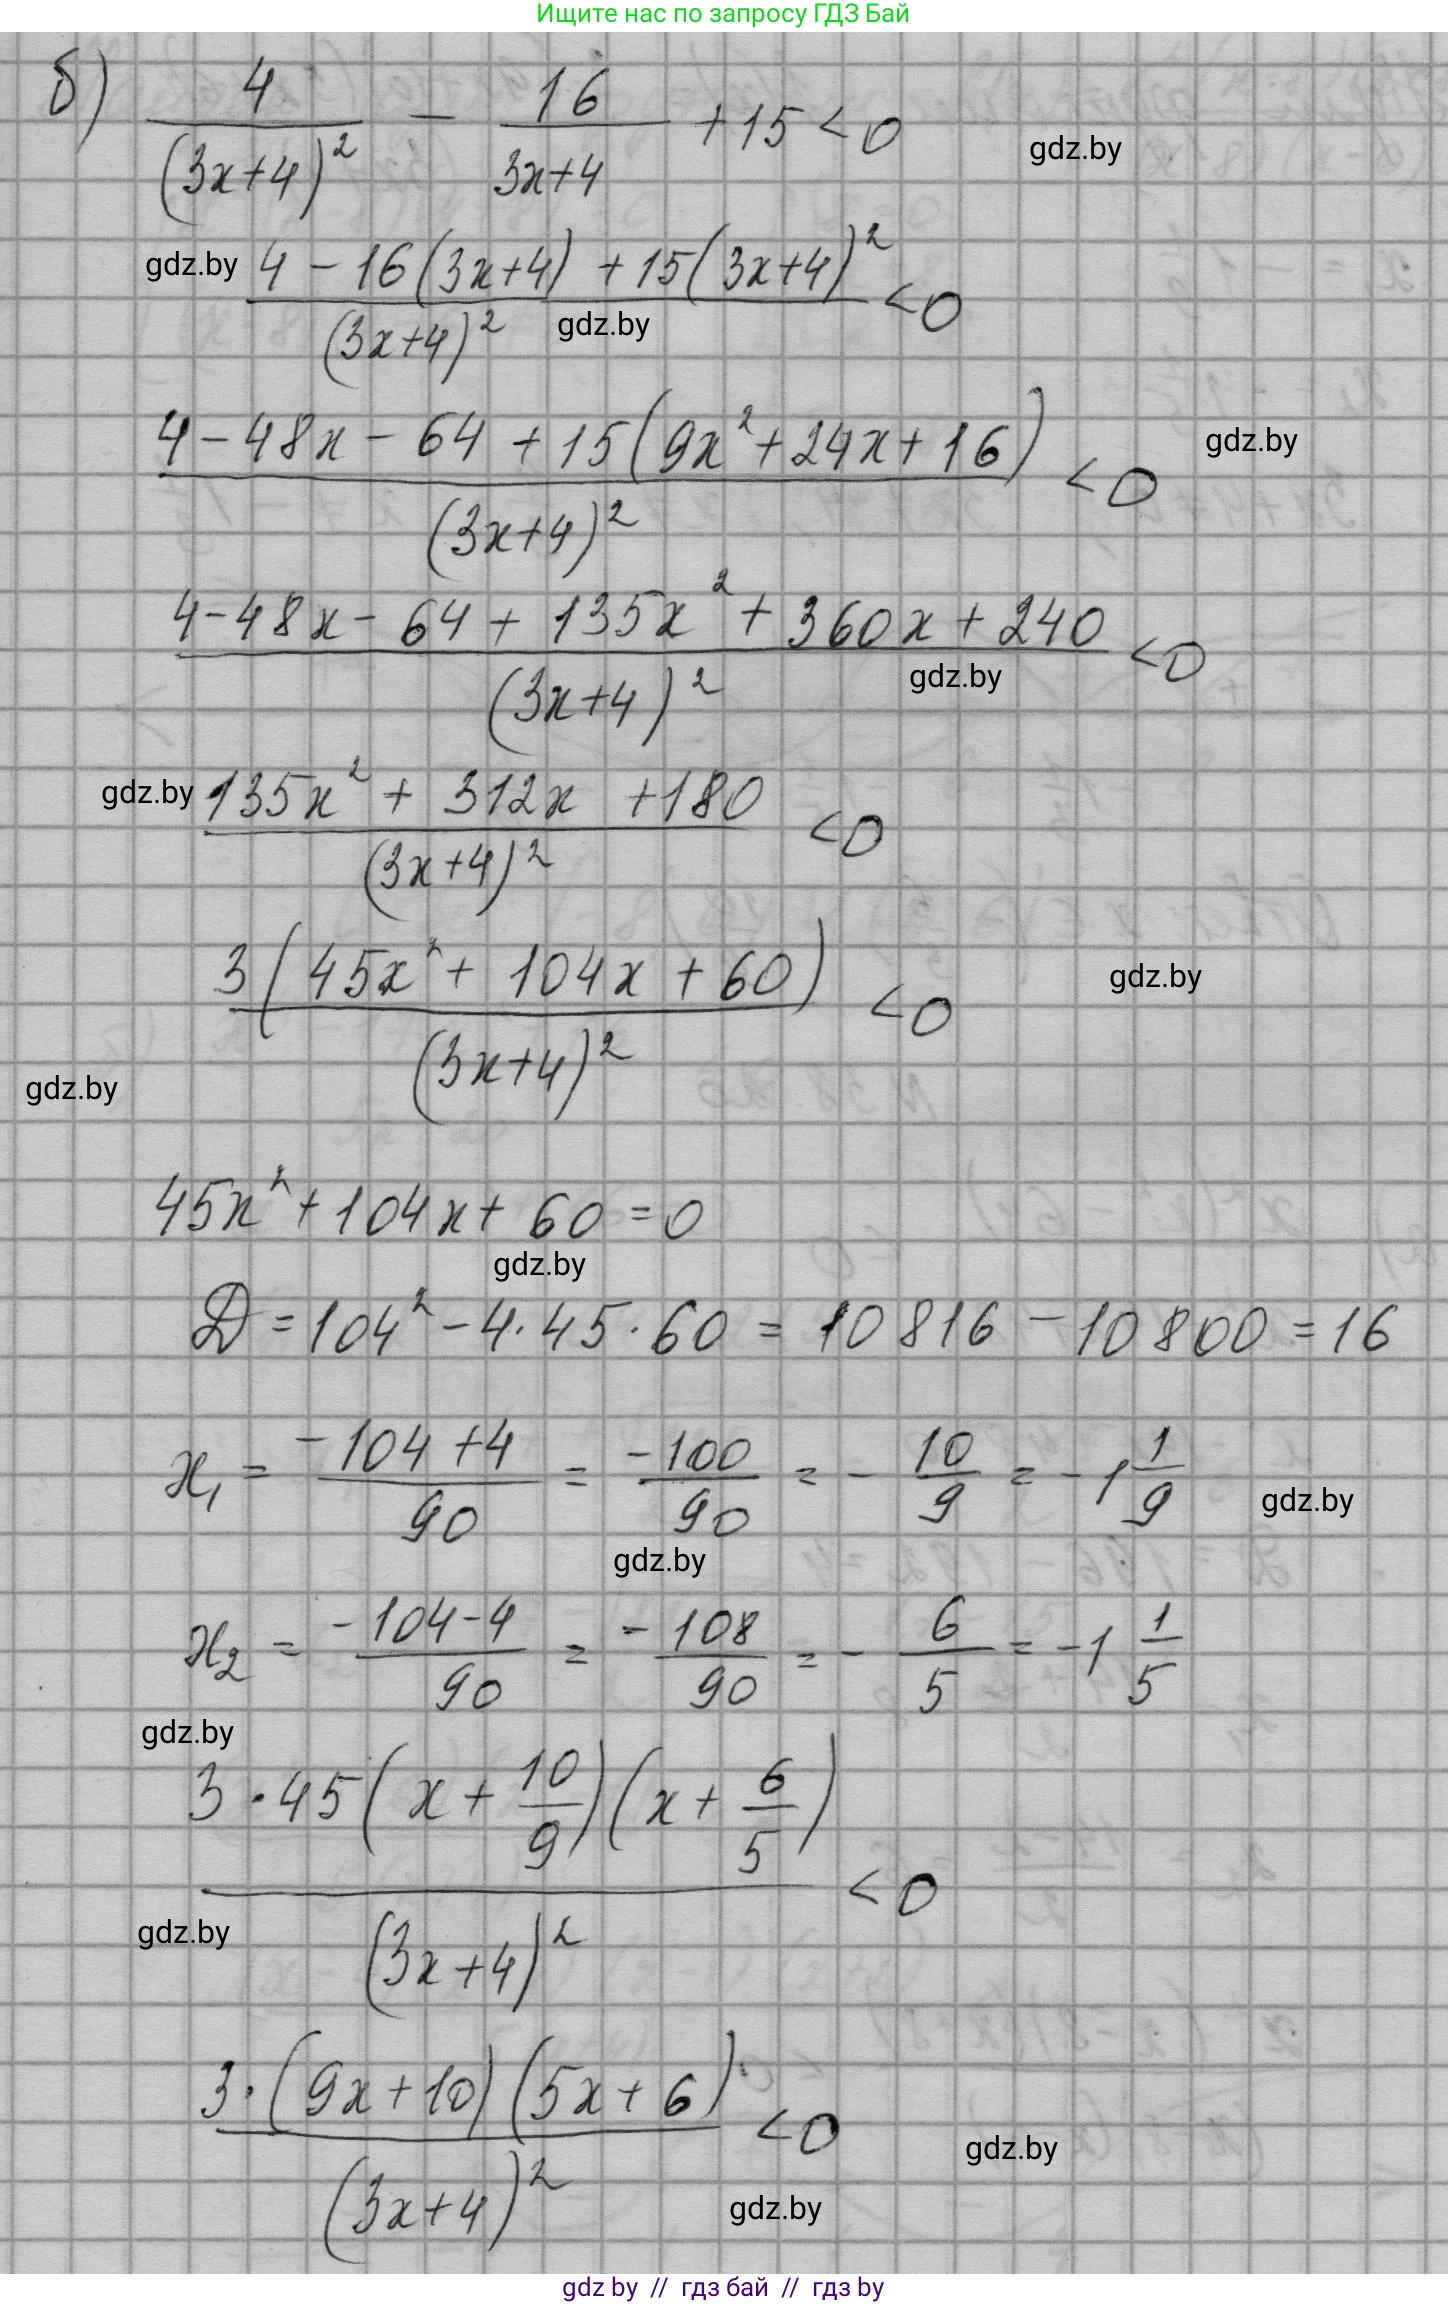 Ищите нас по запросу ГДЗ Бай
б) 4/(3x+4)² − 16/(3x+4) + 15 < 0
gdz.by
gdz.by
(4 − 16(3x+4) + 15(3x+4)²)/(3x+4)² < 0
gdz.by
(4 − 48x − 64 + 15(9x² + 24x + 16))/(3x+4)² < 0
gdz.by
(4 − 48x − 64 + 135x² + 360x + 240)/(3x+4)² < 0
gdz.by
gdz.by
(135x² + 312x + 180)/(3x+4)² < 0
3(45x² + 104x + 60)/(3x+4)² < 0
gdz.by
gdz.by
45x² + 104x + 60 = 0
gdz.by
Д = 104² − 4·45·60 = 10816 − 10800 = 16
x₁ = (−104 + 4)/90 = −100/90 = −10/9 = −1 1/9
gdz.by
gdz.by
x₂ = (−104 − 4)/90 = −108/90 = −6/5 = −1 1/5
gdz.by
3·45(x + 10/9)(x + 6/5)/(3x+4)² < 0
gdz.by
3·(9x+10)(5x+6)/(3x+4)² < 0
gdz.by
gdz.by
gdz by // гдз бай // гдз by